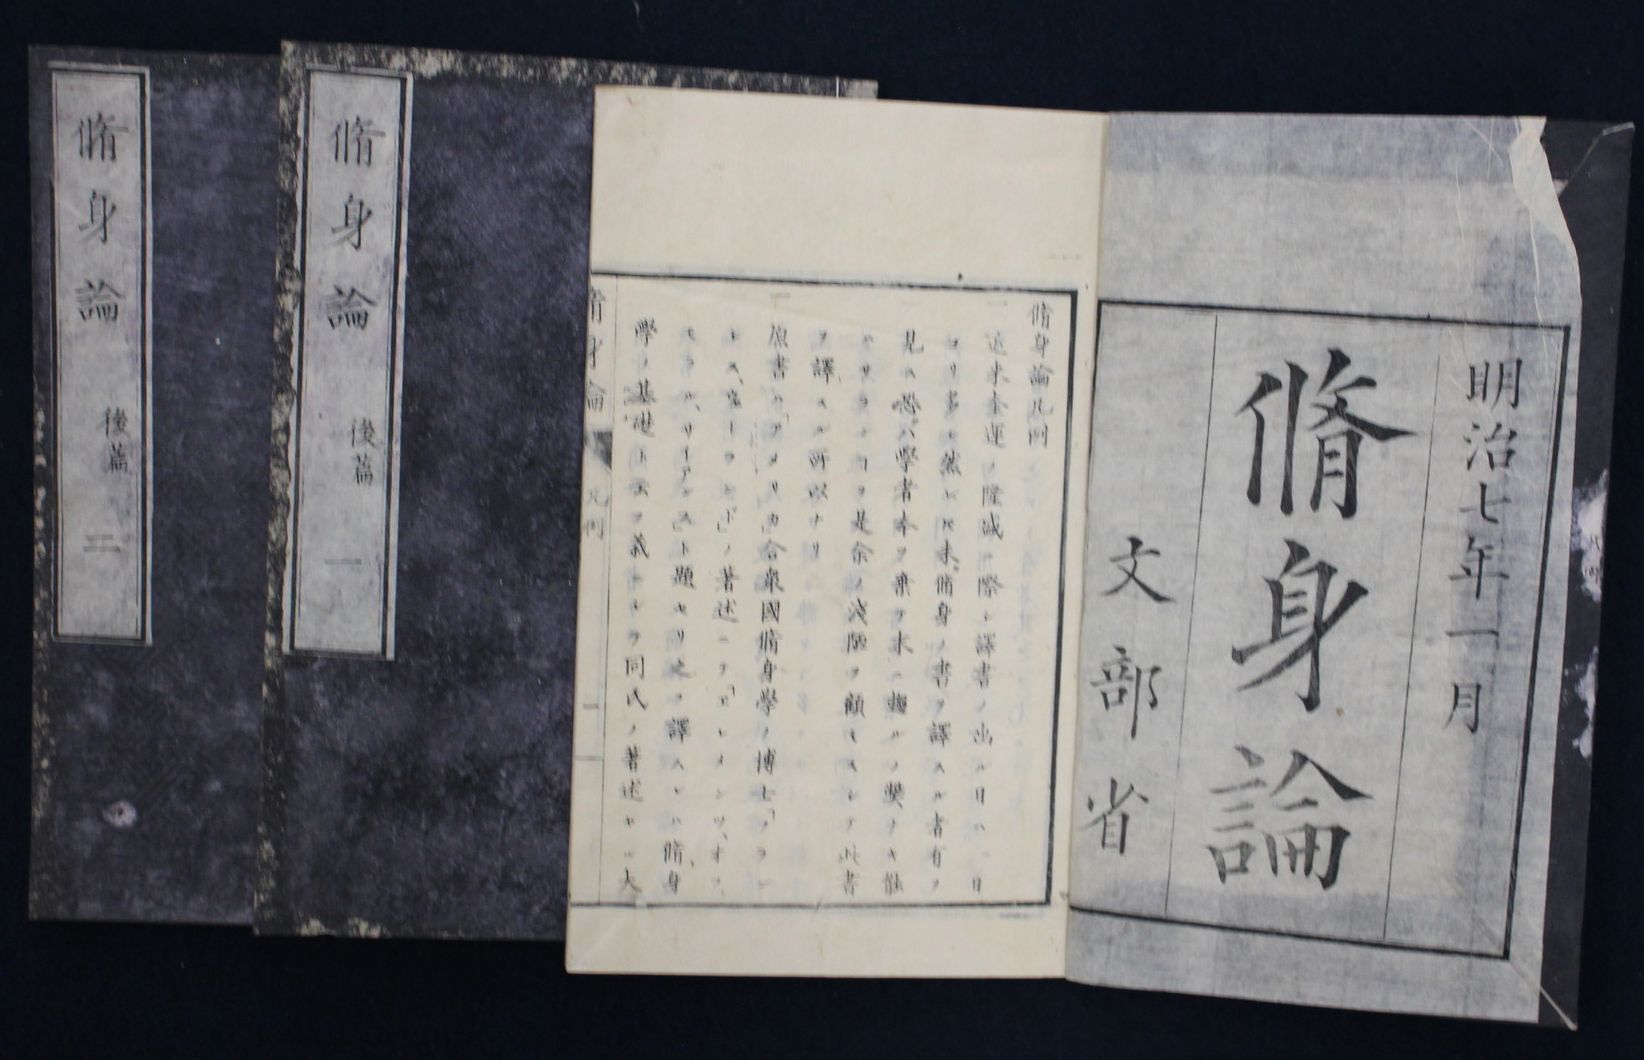 明治七年一月
脩身論
文部省
脩身論凡例
一近來奎運ノ隆盛ニ際シ譯書ノ出ル日ハ一日
ヨリ多シ然レ𪜈未脩身ノ書ヲ譯スル者有ヲ
見ス恐ハ學者本ヲ棄テ末ニ趨ルノ弊ナキ能
ハサランコヲ是余ノ淺陋ヲ顧ミスシテ此書
ヲ譯スル所以ナリ
一原書ハ「アメリカ」合衆國脩身學ノ博士「フラン
シス、ウエーランド」ノ著述ニテ「エレメンツ、オフ、
モラル、サイアンス」ト題セリ之ヲ譯スレハ脩身
學ノ基礎ト云フ義ニシテ同氏ノ著述セシ大
脩身論 凡例 一
脩身論 後篇 一
脩身論 後篇 二